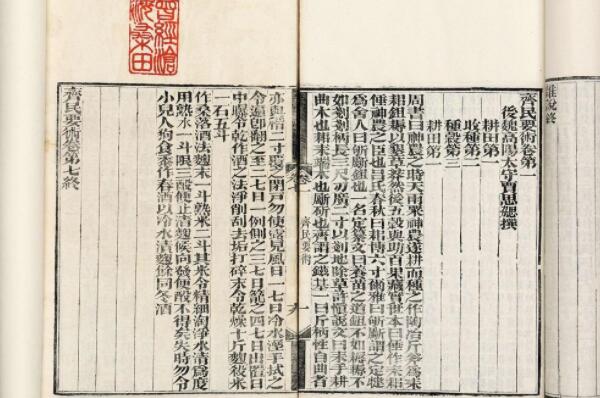 雜說終
齊民要術卷第一
後魏高陽太守賈思勰撰
耕田第一
收種第二
種穀第三
耕田第一
周書曰神農之時天雨粟神農遂耕而種之作陶冶斤斧為耒
耜鉏耨以墾草莽然後五穀興助百果藏實世本曰倕作耒耜
倕神農之臣也呂氏春秋曰耜博六寸爾雅曰斪斸謂之定犍
為舍人曰斪斸鉏也一名定纂文曰養苗之道鉏不如耨耨不
如剗剗柄長三尺刃廣二寸以剗地除草許愼說文曰耒手耕
曲木也耜耒端木也斸斫也齊謂之鎡基一曰斤柄性自曲者
卷一
齊民要術
亦與二寸覆之閉戶勿使露見風日一七日冷水溼手拭之
令遍卽翻之至二七日一例側之三七日籠之四七日出置日
中曝令乾作酒之法淨削刮去垢打碎末令乾燥十斤麴殺米
一石五斗
作桑落酒法麴末一斗熟米二斗其米令精細淘淨水清為度
用熱水一斗限三酘便止漬麴候向發便酘不得失時勿令
小兒人狗食黍作春酒以冷水漬麴餘同冬酒
齊民要術卷第七終
曾經滄海桑田